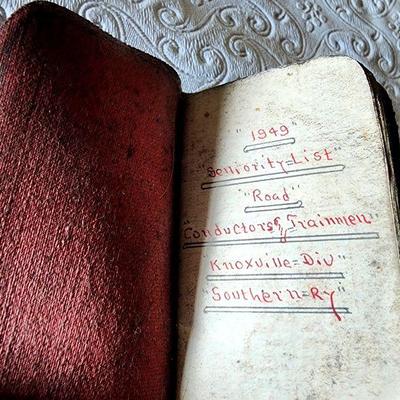 "1949"
"Seniority=List"
"Road"
"Conductors & Trainmen"
"Knoxville=Div"
"Southern=Ry"